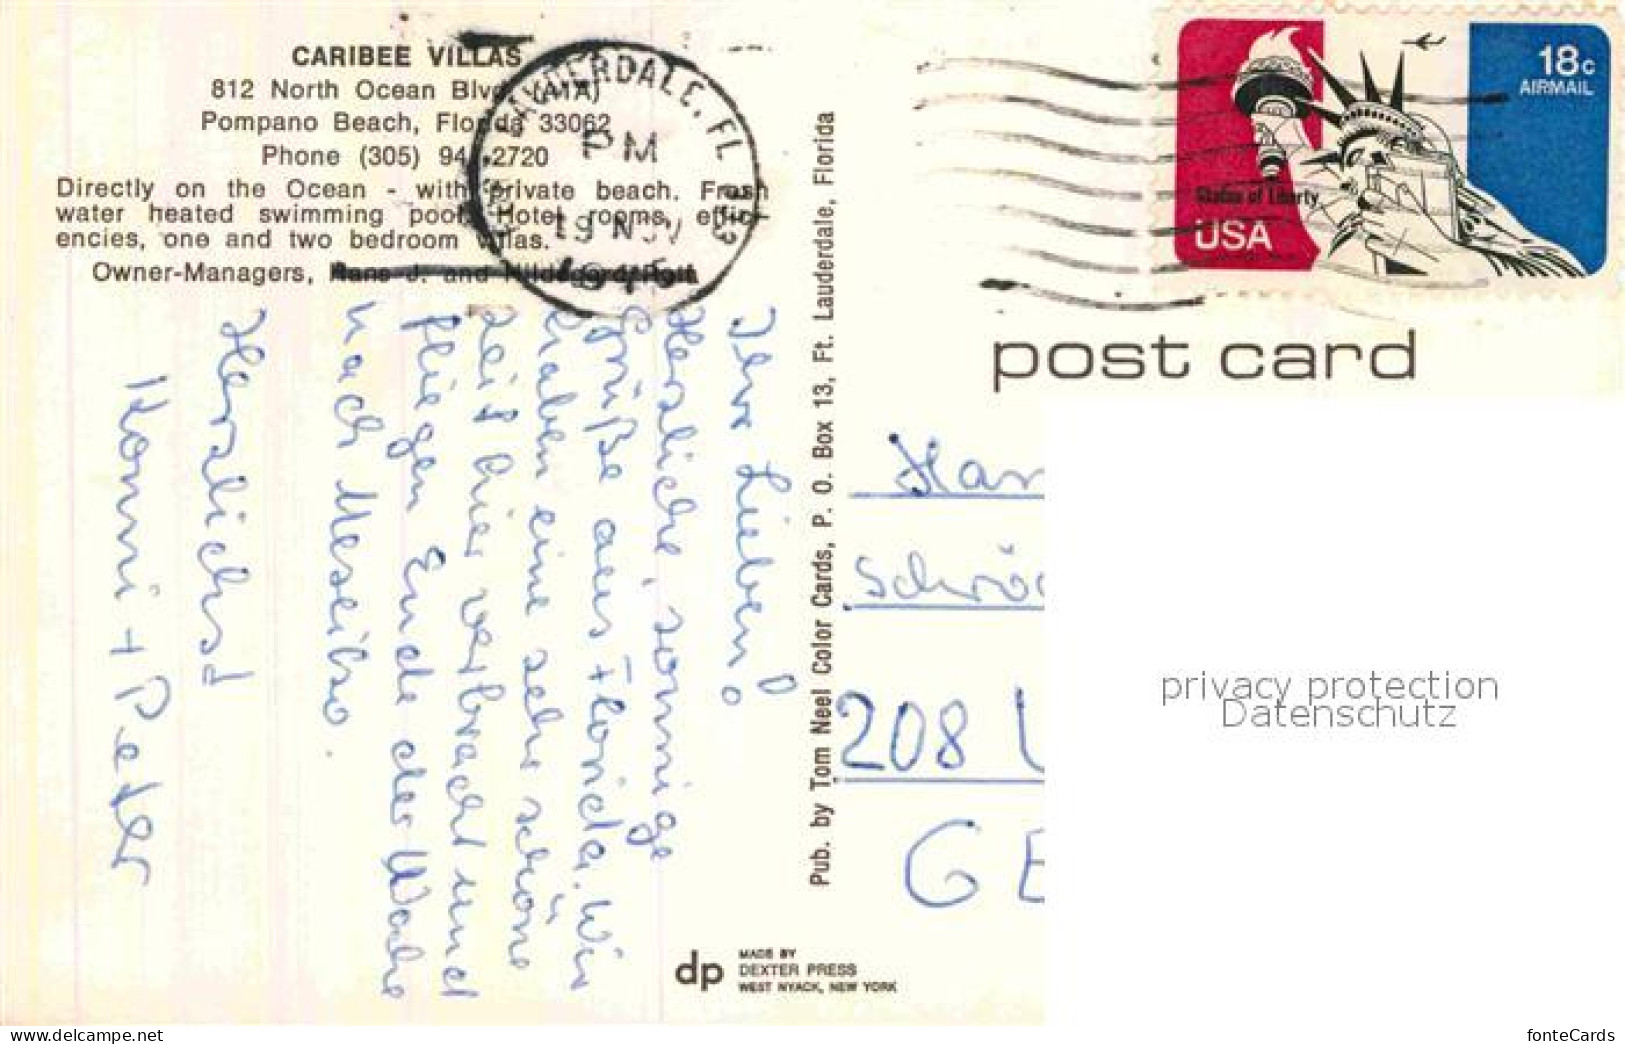 CARIBEE VILLAS
812 North Ocean Blvd. (A1A)
Pompano Beach, Florida 33062
Phone (305) 94 -2720
Directly on the Ocean - with private beach. Fresh
water heated swimming pool. Hotel rooms, effici-
encies, one and two bedroom villas.
Owner-Managers,
LAUDERDALE, FL
PM
19 NOV
1975
333
18c
AIRMAIL
Statue of Liberty
USA
post card
Ihr Lieben!
Herzliche, sonnige
Grüße aus Florida. Wir
haben eine sehr schöne
Zeit hier verbracht und
fliegen Ende der Woche
nach Mexiko.
Herzlichst
Konni + Peter
Pub. by Tom Neel Color Cards, P. O. Box 13, Ft. Lauderdale, Florida
Han
Schrö
208
GE
privacy protection
Datenschutz
dp
MADE BY
DEXTER PRESS
WEST NYACK, NEW YORK
www.delcampe.net
fonteCards